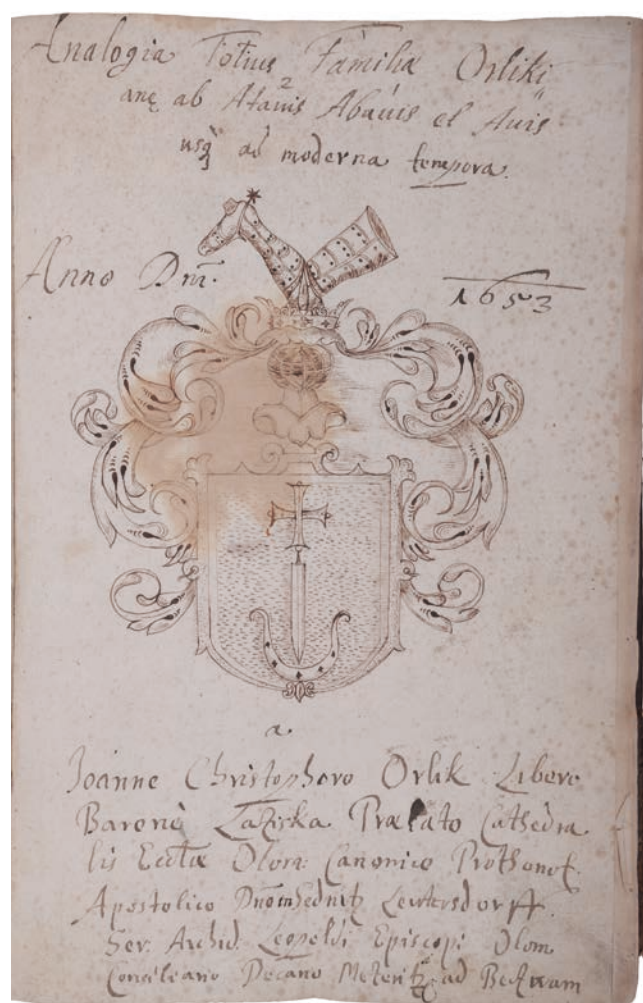 Analogia Totius Familiæ Orliki
anę ab Atauis Abauis et Auis
usq ad moderna tempora.
Anno Dnī. 1653
a
Joanne Christophoro Orlik Libero
Barone Laziska Prælato Cathedra
lis Eccłæ Olom: Canonico Prothonot.
Apostolico Leuttersdorff.
Ser. Archid. Leopoldi Episcopi Olom
Decano Mezeritz ad Beczwam